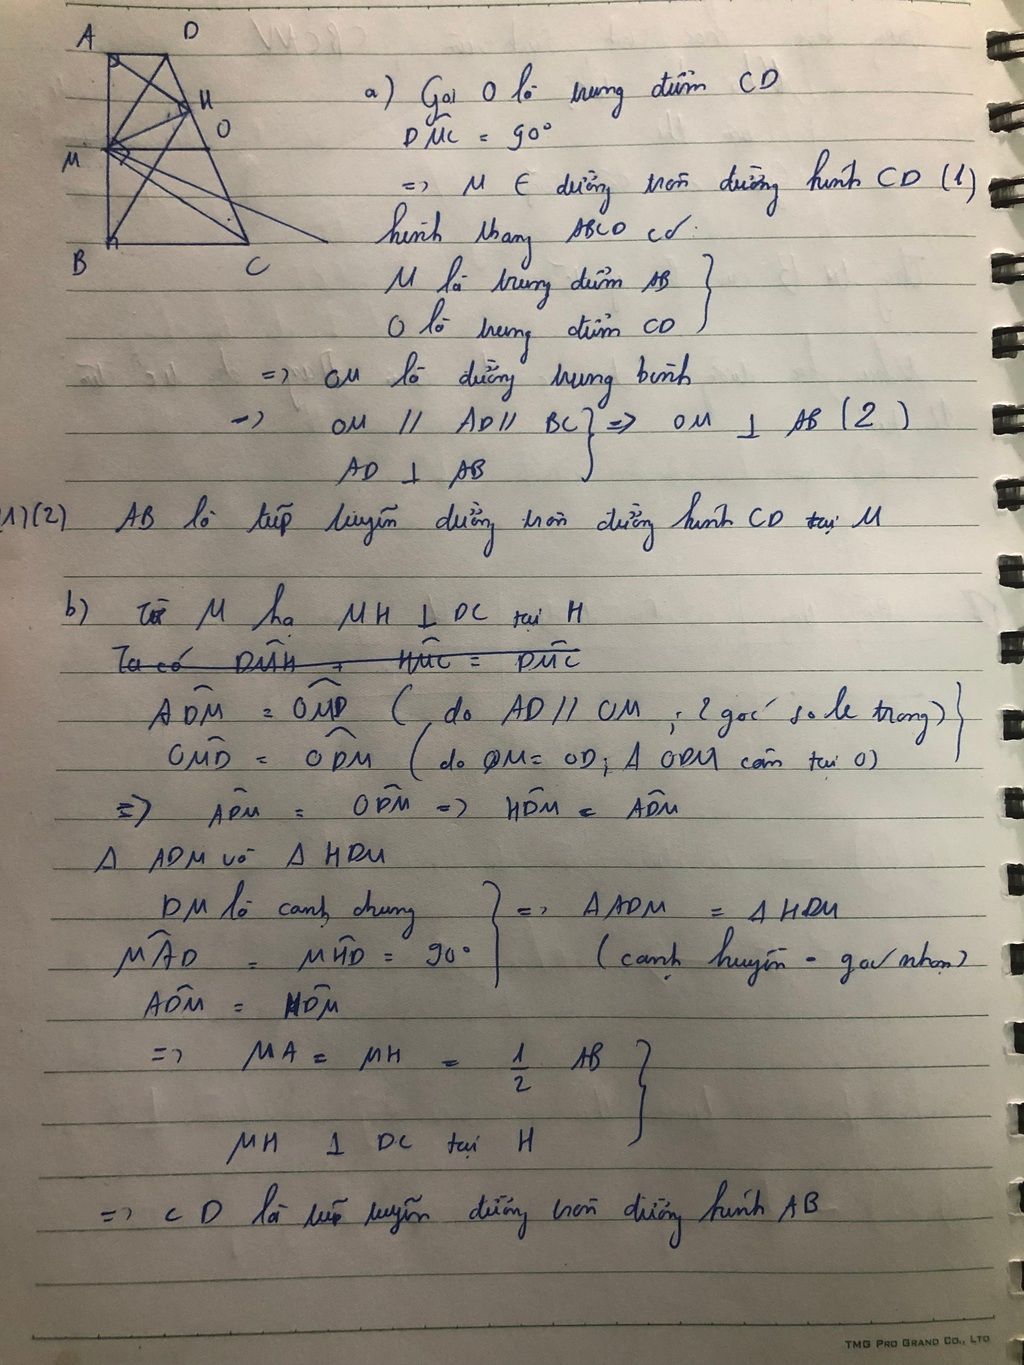 A D
H
O
M
B C
a) Gọi O là trung điểm CD
DM̂C = 90°
=> M ∈ đường tròn đường kính CD (1)
hình thang ABCD có:
M là trung điểm AB
O là trung điểm CD
=> OM là đường trung bình
=> OM // AD // BC => OM ⊥ AB (2)
AD ⊥ AB
1)(2) AB là tiếp tuyến đường tròn đường kính CD tại M
b) Từ M hạ MH ⊥ DC tại H
Ta có DM̂H + HM̂C = DM̂C
AD̂M = OM̂D ( do AD // OM ; 2 góc so le trong)
OM̂D = OD̂M ( do OM = OD; Δ ODM cân tại O)
=> AD̂M = OD̂M => HD̂M = AD̂M
Δ ADM và Δ HDM
DM là cạnh chung => Δ ADM = Δ HDM
MÂD = MĤD = 90° (cạnh huyền - góc nhọn)
AD̂M = HD̂M
=> MA = MH = 1/2 AB
MH ⊥ DC tại H
=> CD là tiếp tuyến đường tròn đường kính AB
TMG PRO GRAND CO., LTD